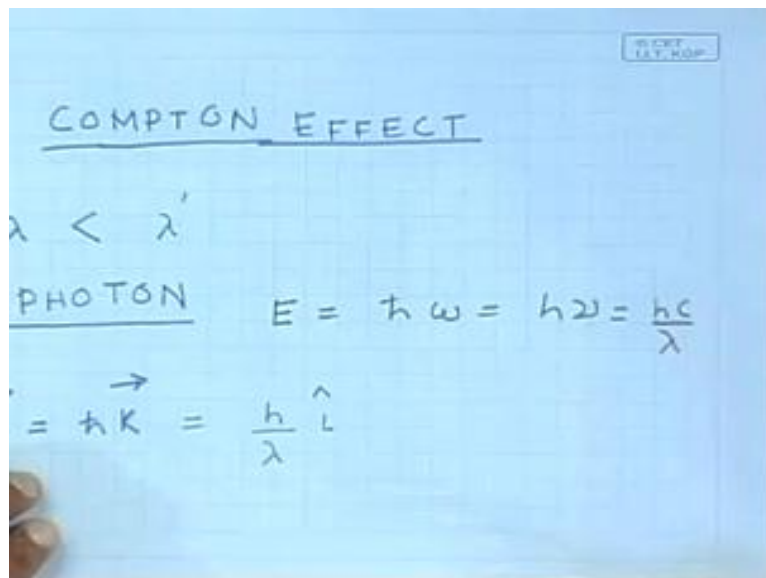 © CET
I.I.T. KGP
COMPTON EFFECT
λ < λ'
PHOTON E = ħω = hν = hc/λ
= ħK⃗ = h/λ î